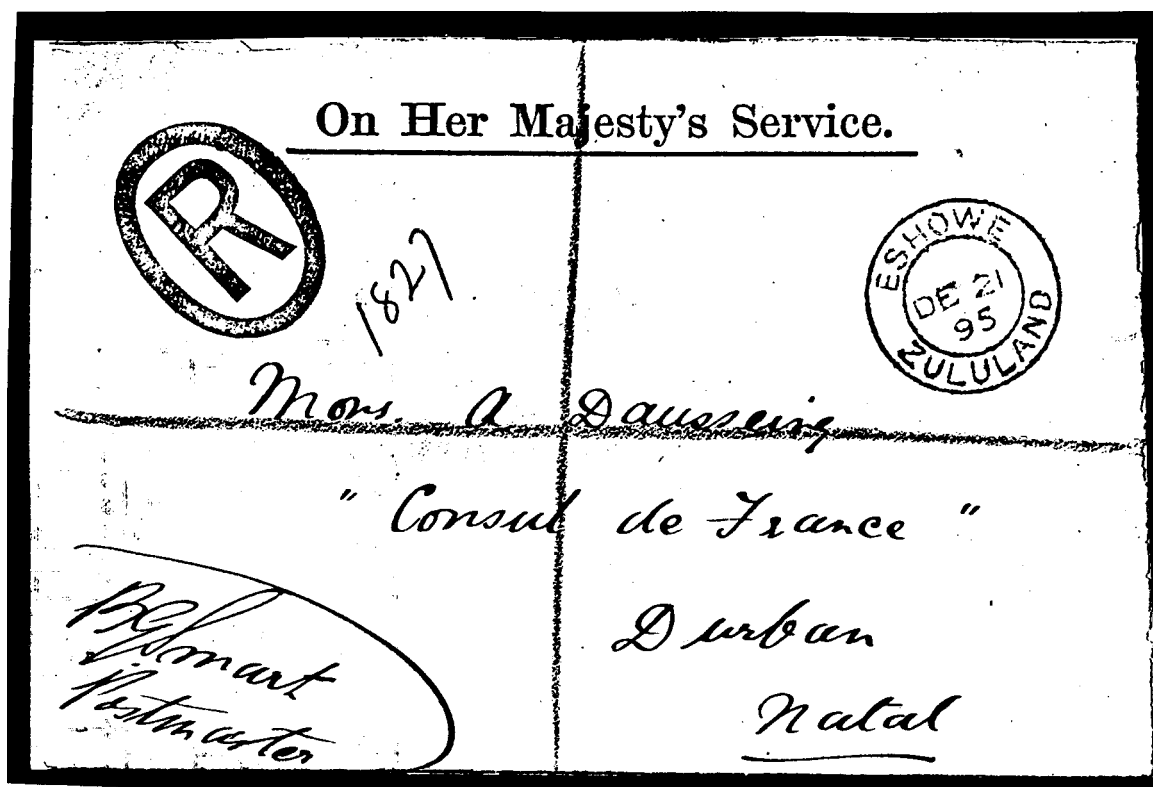 On Her Majesty's Service.
R
1827
ESHOWE
DE 21
95
ZULULAND
Mons. A Dausseing
" Consul de France "
Durban
Natal
B G Smart
Postmaster